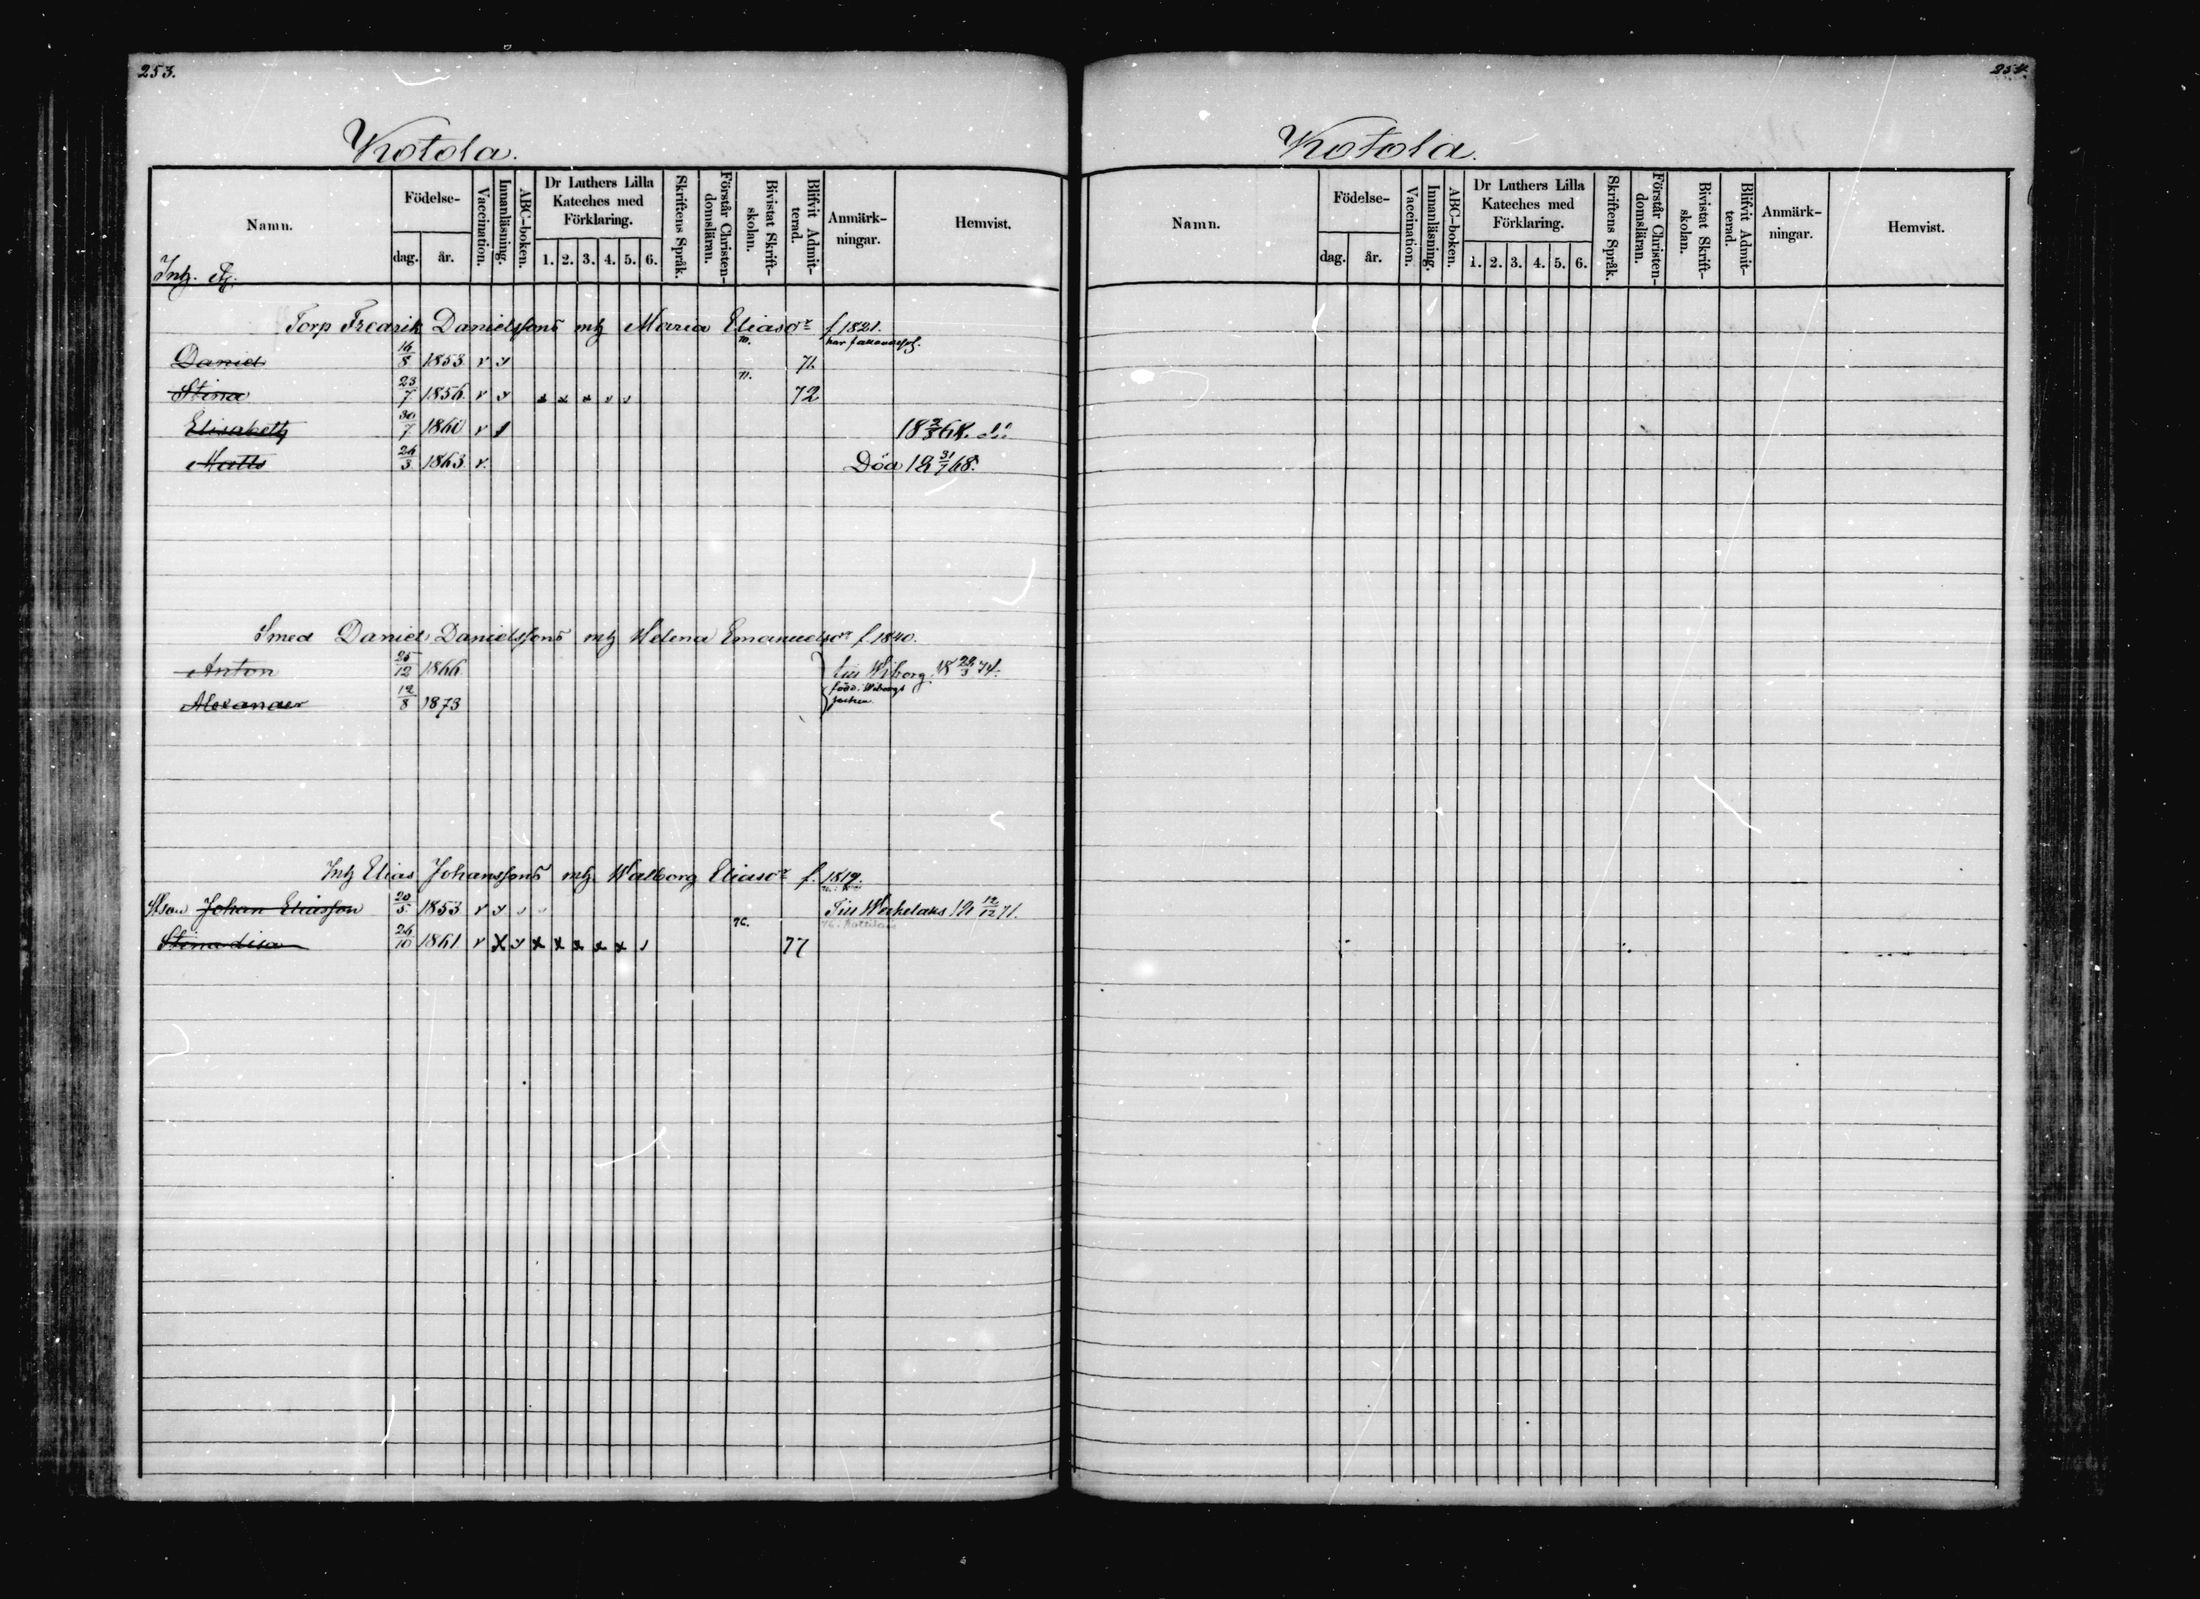 253.
Kotola.
Namn.
Födelse-
dag. år.
Vaccination.
Innanläsning.
ABC-boken.
Dr Luthers Lilla Kateches med Förklaring.
1. 2. 3. 4. 5. 6.
Skriftens Språk.
Förstår Christendomsläran.
Bivistat Skriftskolan.
Blifvit Admitterad.
Anmärkningar.
Hemvist.
Torp Fredrik Danielssons Maria Eliasdr f 1821.
Daniel 16/8 1853 v 71
Stina 23/7 1856 v x x x 72
Elisabeth 30/7 1860 v 18 3/3 68.
Matts 26/3 1863 v. Död 18 31/7 68.
Smed Daniel Danielssons Helena Emanuelsdr f 1840.
Anton 25/12 1866 till Wiborg 18 22/3 74.
Alexander 12/8 1873
Elias Johanssons Walborg Eliasdr f. 1819.
Johan Eliasson 20/5 1853 v Till 18 12/12 71.
76.
Stinadisa 26/10 1861 v x x x x x x 77
254
Kotola.
Namn.
Födelse-
dag. år.
Vaccination.
Innanläsning.
ABC-boken.
Dr Luthers Lilla Kateches med Förklaring.
1. 2. 3. 4. 5. 6.
Skriftens Språk.
Förstår Christendomsläran.
Bivistat Skriftskolan.
Blifvit Admitterad.
Anmärkningar.
Hemvist.